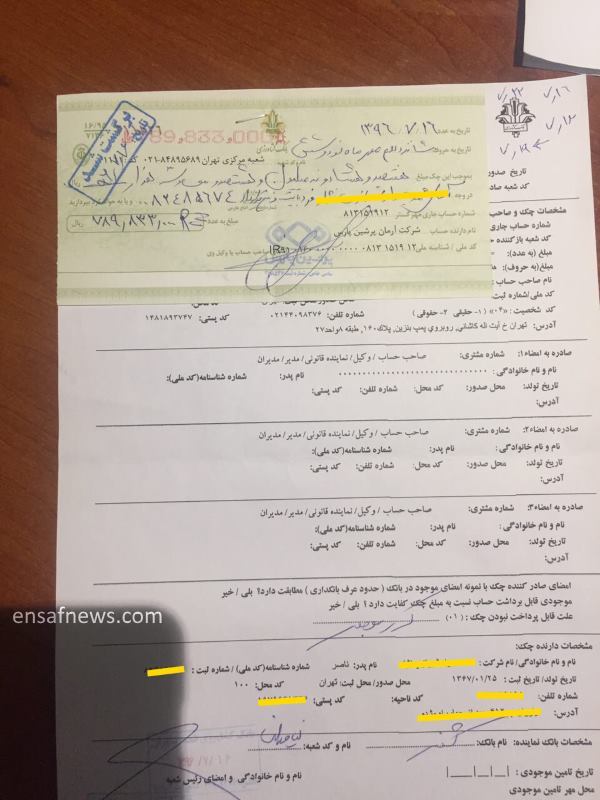 ۷/۱۶
۷/۲۲
۷/۱۲
۷/۱۹
برگشت شد
789,833,000
تاریخ به عدد ۱۳۹۶/۷/۱۶
تاریخ به حروف شانزدهم مهر ماه نود و شش
شعبه مرکزی تهران ۸۴۸۹۵۶۸۹-۰۲۱
بموجب این چک مبلغ هفتصد و هشتاد و نه میلیون و هشتصد و سی و سه هزار ریال
در وجه
۸۲۴۸۵۶۷۴
شماره حساب جاری مهر گستر ۸۱۳۱۵۱۹۱۲
۷۸۹,۸۳۳,۰۰۰
مبلغ به عدد
ریال
نام دارنده حساب شرکت آرمان پرشین پارس
کد ملی / شناسنامه ملی
0813 1519 12
صاحب حساب یا وکیل وی
تاریخ صدور
کد شعبه صاد
مشخصات چک و صاحب
شماره حساب جاری
کد شعبه بازکننده ح
مبلغ (به عدد):
مبلغ (به حروف):
نام صاحب حساب
کد ملی/شماره ثبت
کد شخصیت: «۰۴» (۱- حقیقی ۲- حقوقی)
شماره تلفن: ۰۲۱۴۴۰۹۸۳۷۶
کد پستی: ۱۴۸۱۸۹۳۷۴۷
آدرس: تهران خ آیت اله کاشانی, روبروی پمپ بنزین, پلاک۱۶۰, طبقه ۸واحد۲۷
صادره به امضاء۱: شماره مشتری: صاحب حساب / وکیل / نماینده قانونی / مدیر/ مدیران
نام و نام خانوادگی: نام پدر: شماره شناسنامه(کد ملی):
تاریخ تولد: محل صدور: کد محل: شماره تلفن: کد پستی:
آدرس:
صادره به امضاء۲: شماره مشتری: صاحب حساب / وکیل / نماینده قانونی / مدیر/ مدیران
نام و نام خانوادگی: نام پدر: شماره شناسنامه(کد ملی):
تاریخ تولد: محل صدور: کد محل: شماره تلفن: کد پستی:
آدرس:
صادره به امضاء۳: شماره مشتری: صاحب حساب / وکیل / نماینده قانونی / مدیر/ مدیران
نام و نام خانوادگی: نام پدر: شماره شناسنامه(کد ملی):
تاریخ تولد: محل صدور: کد محل: شماره تلفن: کد پستی:
آدرس:
امضای صادر کننده چک با نمونه امضای موجود در بانک ( حدود عرف بانکداری ) مطابقت دارد؟ بلی / خیر
موجودی قابل برداشت حساب نسبت به مبلغ چک کفایت دارد؟ بلی / خیر
علت قابل پرداخت نبودن چک: (۰۱) کسر موجودی
ensafnews.com
مشخصات دارنده چک:
نام و نام خانوادگی/ نام شرکت: نام پدر: ناصر شماره شناسنامه(کد ملی) / شماره ثبت :
تاریخ تولد/ تاریخ ثبت : ۱۳۶۷/۰۱/۲۵ محل صدور/ محل ثبت: تهران کد محل: ۱۰۰
شماره تلفن: کد ناحیه: کد پستی:
آدرس:
مشخصات بانک نماینده: نام بانک: نام و کد شعبه:
تاریخ تامین موجودی نام و نام خانوادگی و امضای رئیس شعبه
محل مهر تامین موجودی